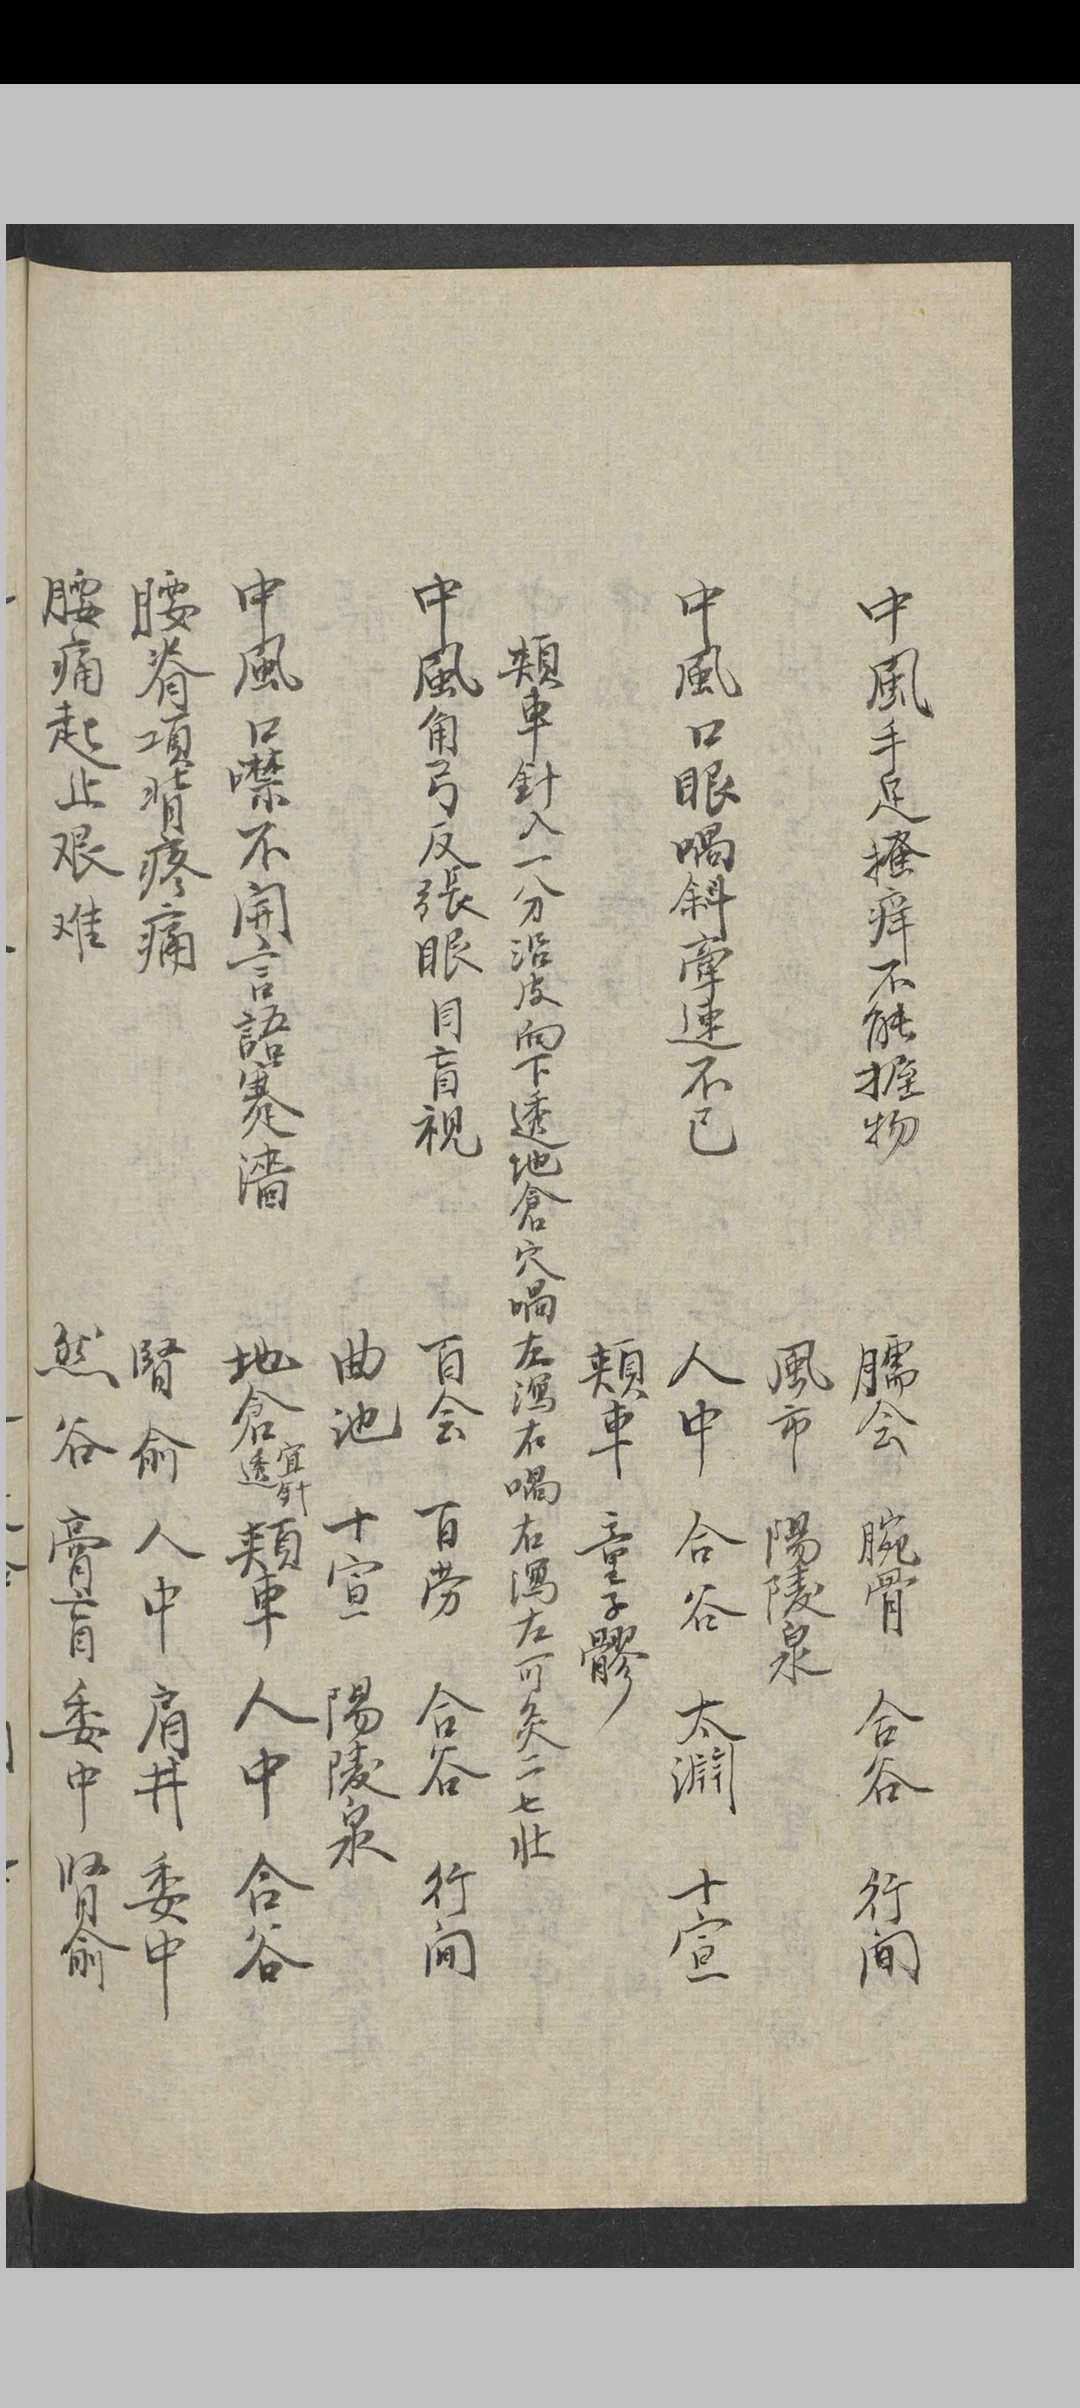 中風手足搔痒不能握物　臑会　腕骨　合谷　行间
風市　陽陵泉
中風口眼喎斜牽連不已　人中　合谷　太淵　十宣
頬車　童子髎
頬車針入一分沿皮向下透地倉穴喎左瀉右喎右瀉左可灸二七壮
中風角弓反張眼目盲視　百会　百劳　合谷　行间
曲池　十宣　陽陵泉
中風口噤不開言語蹇濇　地倉宜針透頬車　人中　合谷
腰脊項背疼痛　腎俞　人中　肩井　委中
腰痛起止艰难　然谷　膏肓　委中　肾俞